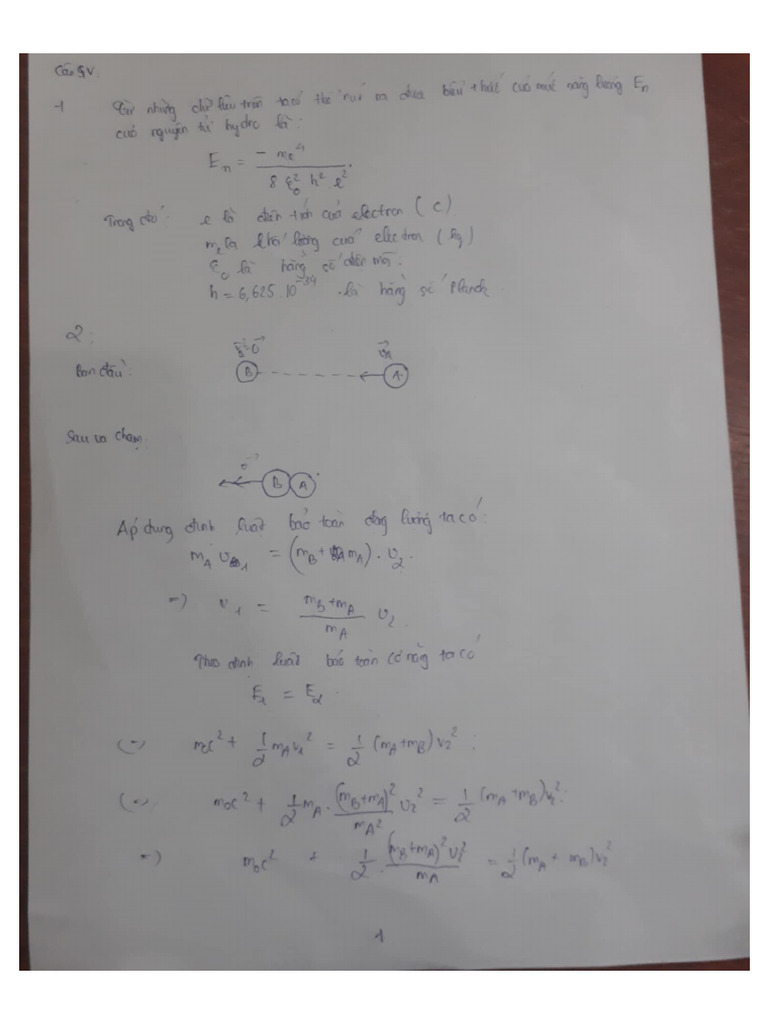 Câu IV.
1 Từ những dữ liệu trên ta có thể rút ra được biểu thức của mức năng lượng Eₙ
của nguyên tử hydro là:
Eₙ = − me⁴ / 8 ε₀² h² l².
Trong đó: e là điện tích của electron (C)
mₑ là khối lượng của electron (kg)
ε₀ là hằng số điện môi.
h = 6,625.10⁻³⁴ là hằng số Planck.
2:
Ban đầu:
B v_A A
Sau va chạm.
v B A
Áp dụng định luật bảo toàn động lượng ta có:
m_A v₁ = (m_B + m_A) . v₂.
=) v₁ = (m_B + m_A) / m_A v₂.
Theo định luật bảo toàn cơ năng ta có
E₁ = E₂.
(=) m₀c² + 1/2 m_A v₁² = 1/2 (m_A + m_B) v₂²
(=) m₀c² + 1/2 m_A . (m_B + m_A)² / m_A² v₂² = 1/2 (m_A + m_B) v₂²
=) m₀c² + 1/2 . (m_B + m_A)² v₂² / m_A = 1/2 (m_A + m_B) v₂²
1